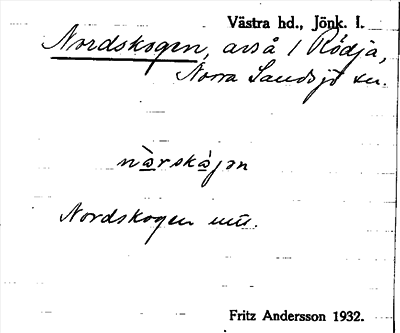 Västra hd., Jönk. l.
Nordskogen, avs å 1 Rödja,
Norra Sandsjö sn.
nà̱rskà̱jen
Nordskogen mt.
Fritz Andersson 1932.